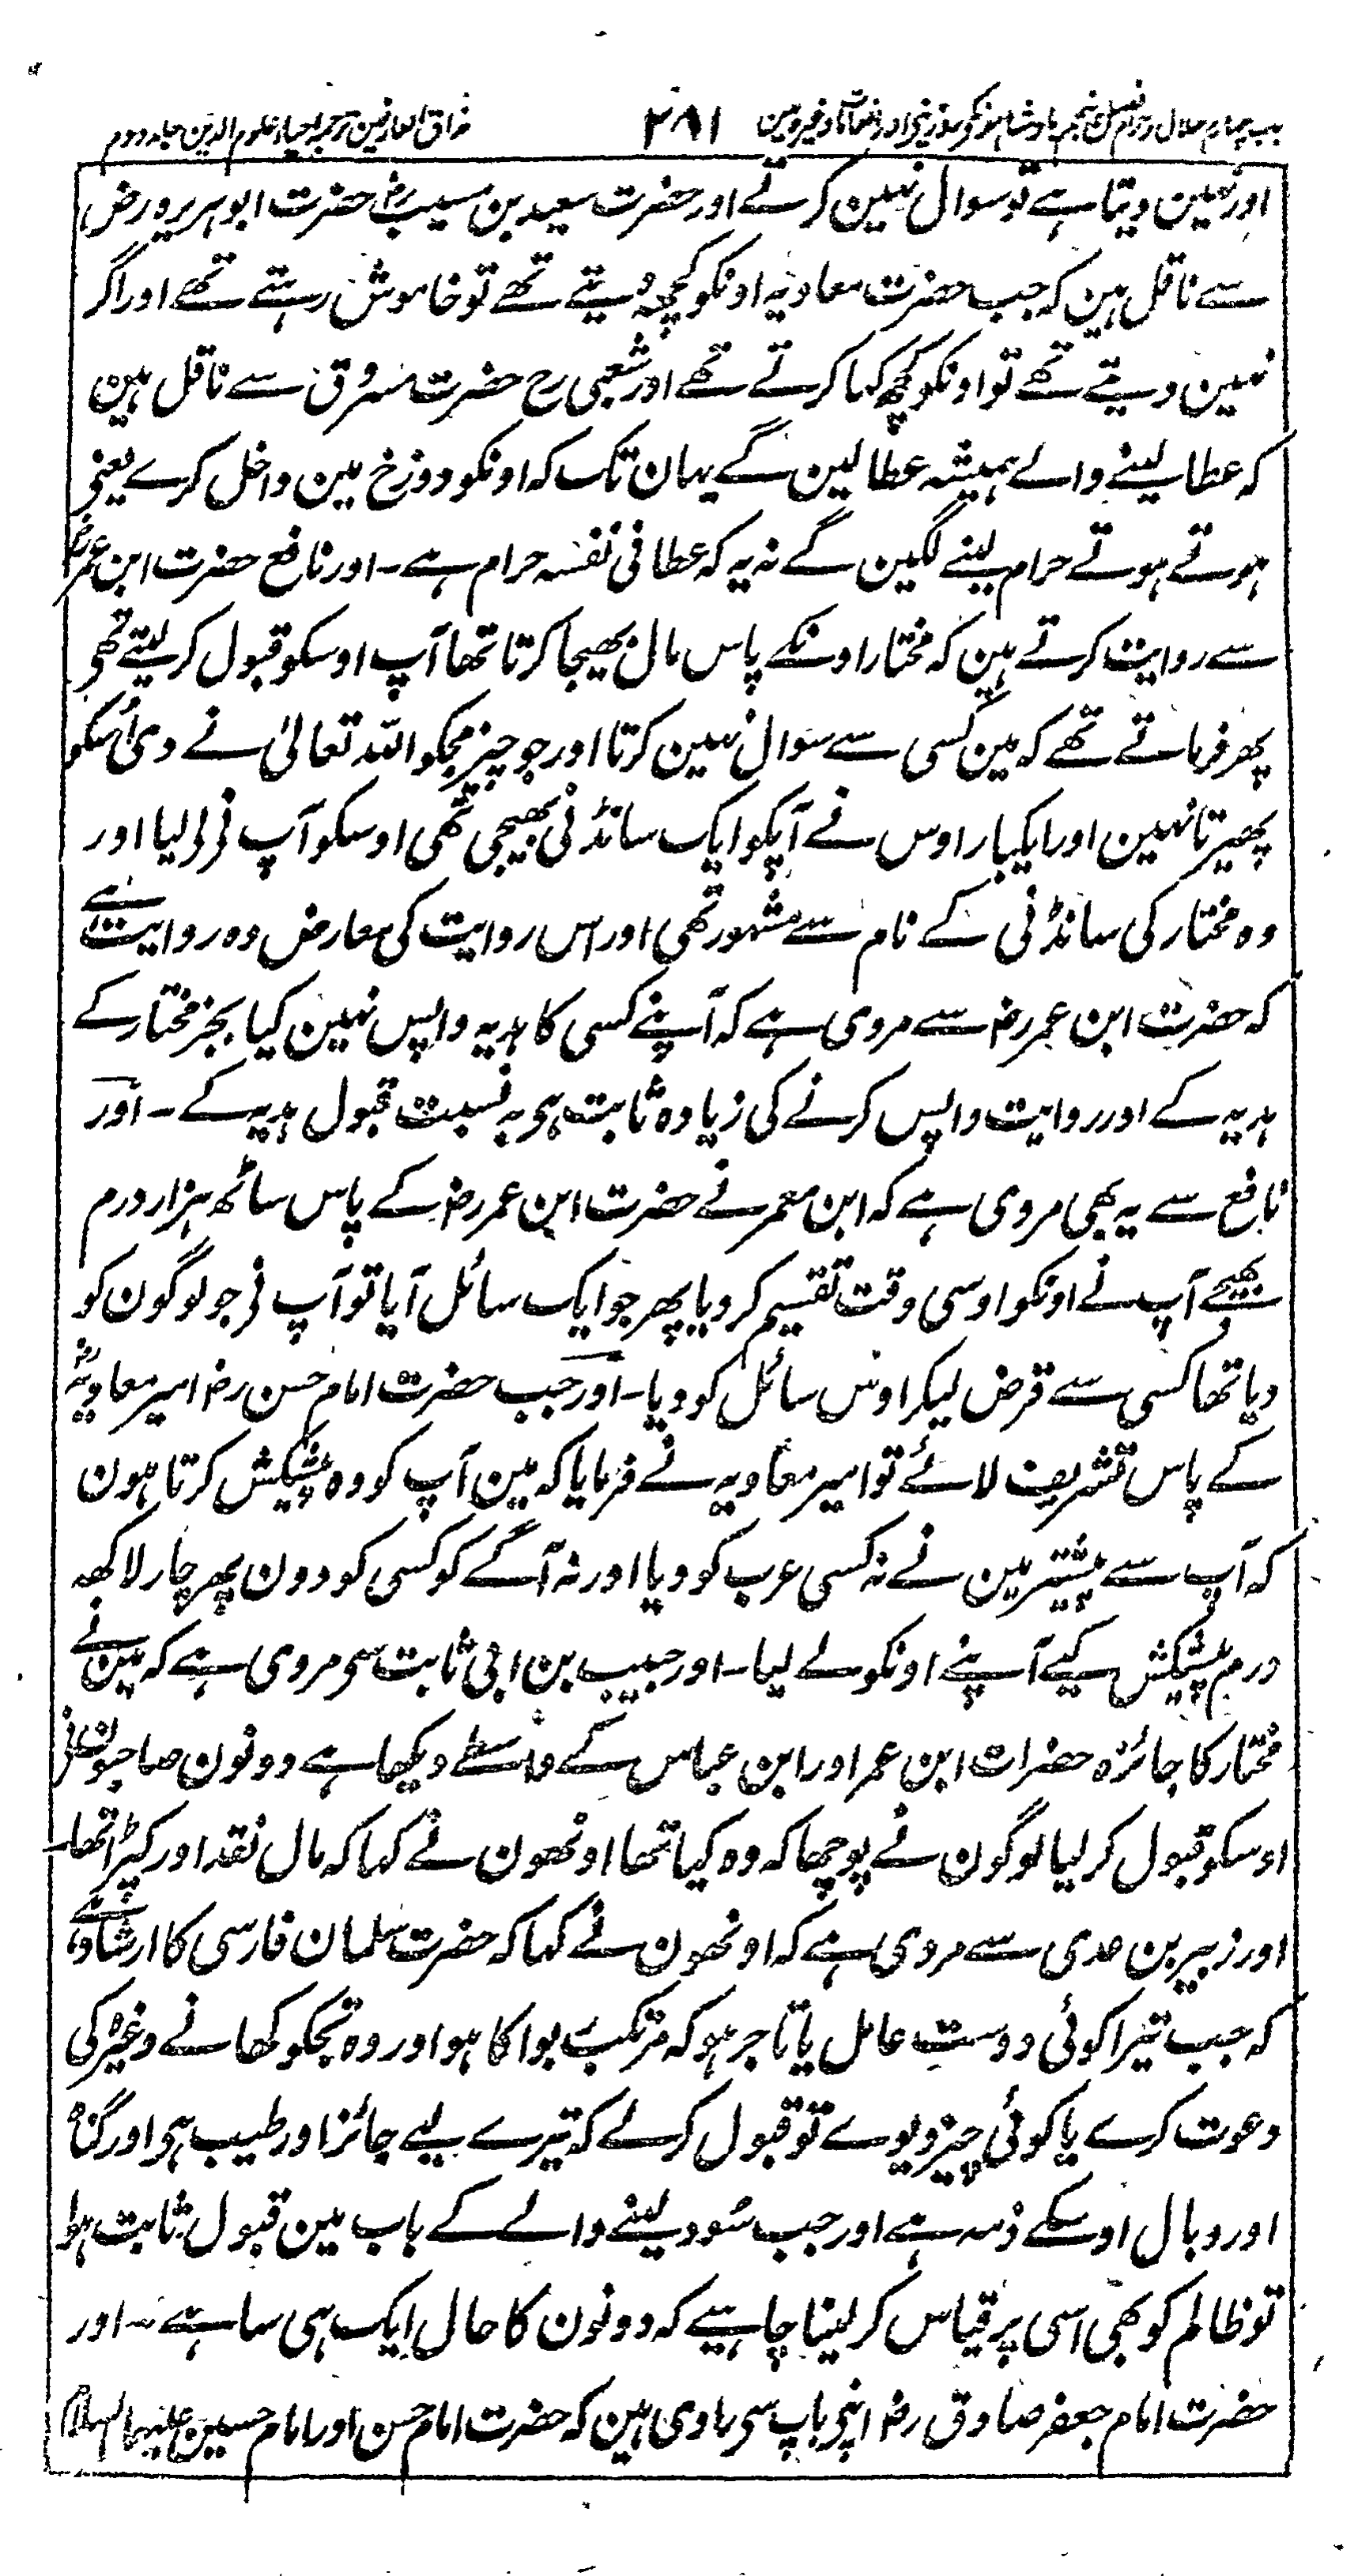 باب چہارم حلال و حرام فصل پنجم بادشاہونکے روزینی اور انعامات وغیرہ مین ۲۸۱ مذاق العارفین ترجمہ احیاء علوم الدین جلد دوم
اور نہین دیتا ہے تو سوال نہین کرتے اور حضرت سعید بن مسیب رضؓ حضرت ابو ہریرہ رضؓ
سے ناقل ہین کہ جب حضرت معاویہ اونکو کچھ دیتے تھے تو خاموش رہتے تھے اور اگر
نہین دیتے تھے تو اونکو کچھ کہا کرتے تھے اور شعبی رح حضرت مسروق سے ناقل ہین
کہ عطا لینے والے ہمیشہ عطا لین گے یہان تک کہ اونکو دوزخ مین داخل کرے یعنی
ہوتے ہوتے حرام لینے لگین گے نہ یہ کہ عطا فی نفسہ حرام ہے ۔ اور نافع حضرت ابن عمرؓ
سے روایت کرتے ہین کہ مختار اونکے پاس مال بھیجا کرتا تھا آپ اوسکو قبول کر لیتے تھی
پھر فرماتے تھے کہ مین کسی سے سوال نہین کرتا اور جو چیز مجکو اللہ تعالیٰ نے دی اُسکو
پھیرتا نہین اور ایکبار اوس نے آپکو ایک سانڈنی بھیجی تھی اوسکو آپ نی لے لیا اور
وہ مختار کی سانڈنی کے نام سے مشہور تھی اور اس روایت کی معارض وہ روایت ہے
کہ حضرت ابن عمر رضؓ سے مروی ہے کہ آپنے کسی کا ہدیہ واپس نہین کیا بجز مختار کے
ہدیہ کے اور روایت واپس کرنے کی زیادہ ثابت ہی بہ نسبت قبول ہدیہ کے ۔ اور
نافع سے یہ بھی مروی ہے کہ ابن معمر نے حضرت ابن عمر رضؓ کے پاس ساٹھ ہزار درم
بھیجے آپ نے اونکو اوسی وقت تقسیم کر دیا پھر جو ایک سائل آیا تو آپ نی جو لوگون کو
دیا تھا کسی سے قرض لیکر اوس سائل کو دیا ۔ اور جب حضرت امام حسن رضؓ امیر معاویہؓ
کے پاس تشریف لائے تو امیر معاویہ نے فرمایا کہ مین آپ کو وہ پیشکش کرتا ہون
کہ آپ سے پیشتر مین نے نہ کسی عرب کو دیا اور نہ آگے کو کسی کو دون پھر چار لاکھہ
درم پیشکش کیے آپنے اونکو لے لیا ۔ اور حبیب بن ابی ثابت سی مروی ہے کہ مین نے
مختار کا جائزہ حضرات ابن عمر اور ابن عباس کے واسطے دیکھا ہے دونون صاحبون نی
اوسکو قبول کر لیا لوگون نے پوچھا کہ وہ کیا تھا اونھون نے کہا کہ مال نقد اور کپڑا تھا ۔
اور زبیر بن عدی سے مروی ہے کہ اونھون نے کہا کہ حضرت سلمان فارسی کا ارشاد ہے
کہ جب تیرا کوئی دوست عامل یا تاجر ہو کہ مرتکب ربوا کا ہو اور وہ تجکو کھانے وغیرہ کی
دعوت کرے یا کوئی چیز دیوے تو قبول کر لے کہ تیرے لیے جائز اور طیب ہی اور گناہ
اور وبال اوسکے ذمہ ہے اور جب سُود لینے والے کے باب مین قبول ثابت ہوا
تو ظالم کو بھی اسی پر قیاس کر لینا چاہیے کہ دونون کا حال ایک ہی سا ہے ۔ اور
حضرت امام جعفر صادق رضؓ اپنی باپ سی راوی ہین کہ حضرت امام حسن اور امام حسین علیہما السلام